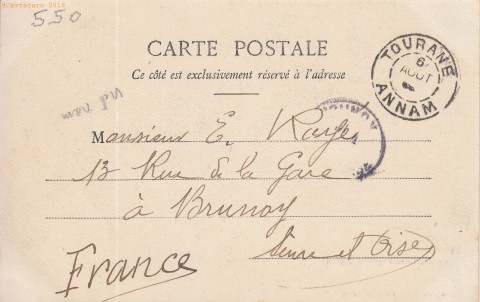 ©Cartacaro 2018
550
CARTE POSTALE
Ce côté est exclusivement réservé à l'adresse
TOURANE
6
AOUT
ANNAM
Viet nam
Monsieur E.
13 Rue de la Gare
à Brunoy
Seine et Oise
France